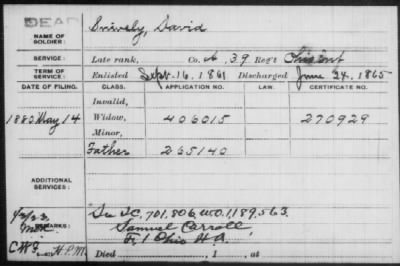 DEAD
NAME OF SOLDIER: Snively, David
SERVICE: Late rank, Co. A, 39 Reg't Ohio Inf
TERM OF SERVICE: Enlisted Sept. 16, 1861 Discharged June 24, 1865
DATE OF FILING. CLASS. APPLICATION NO. LAW. CERTIFICATE NO.
Invalid,
1880 May 14 Widow, 406015 270929
Minor,
Father 265140
ADDITIONAL SERVICES:
REMARKS: See I.C. 701.806, W.O. 1189.563.
Samuel Carroll,
F. 1 Ohio H.A.
H.P.M. Died , 1 , at